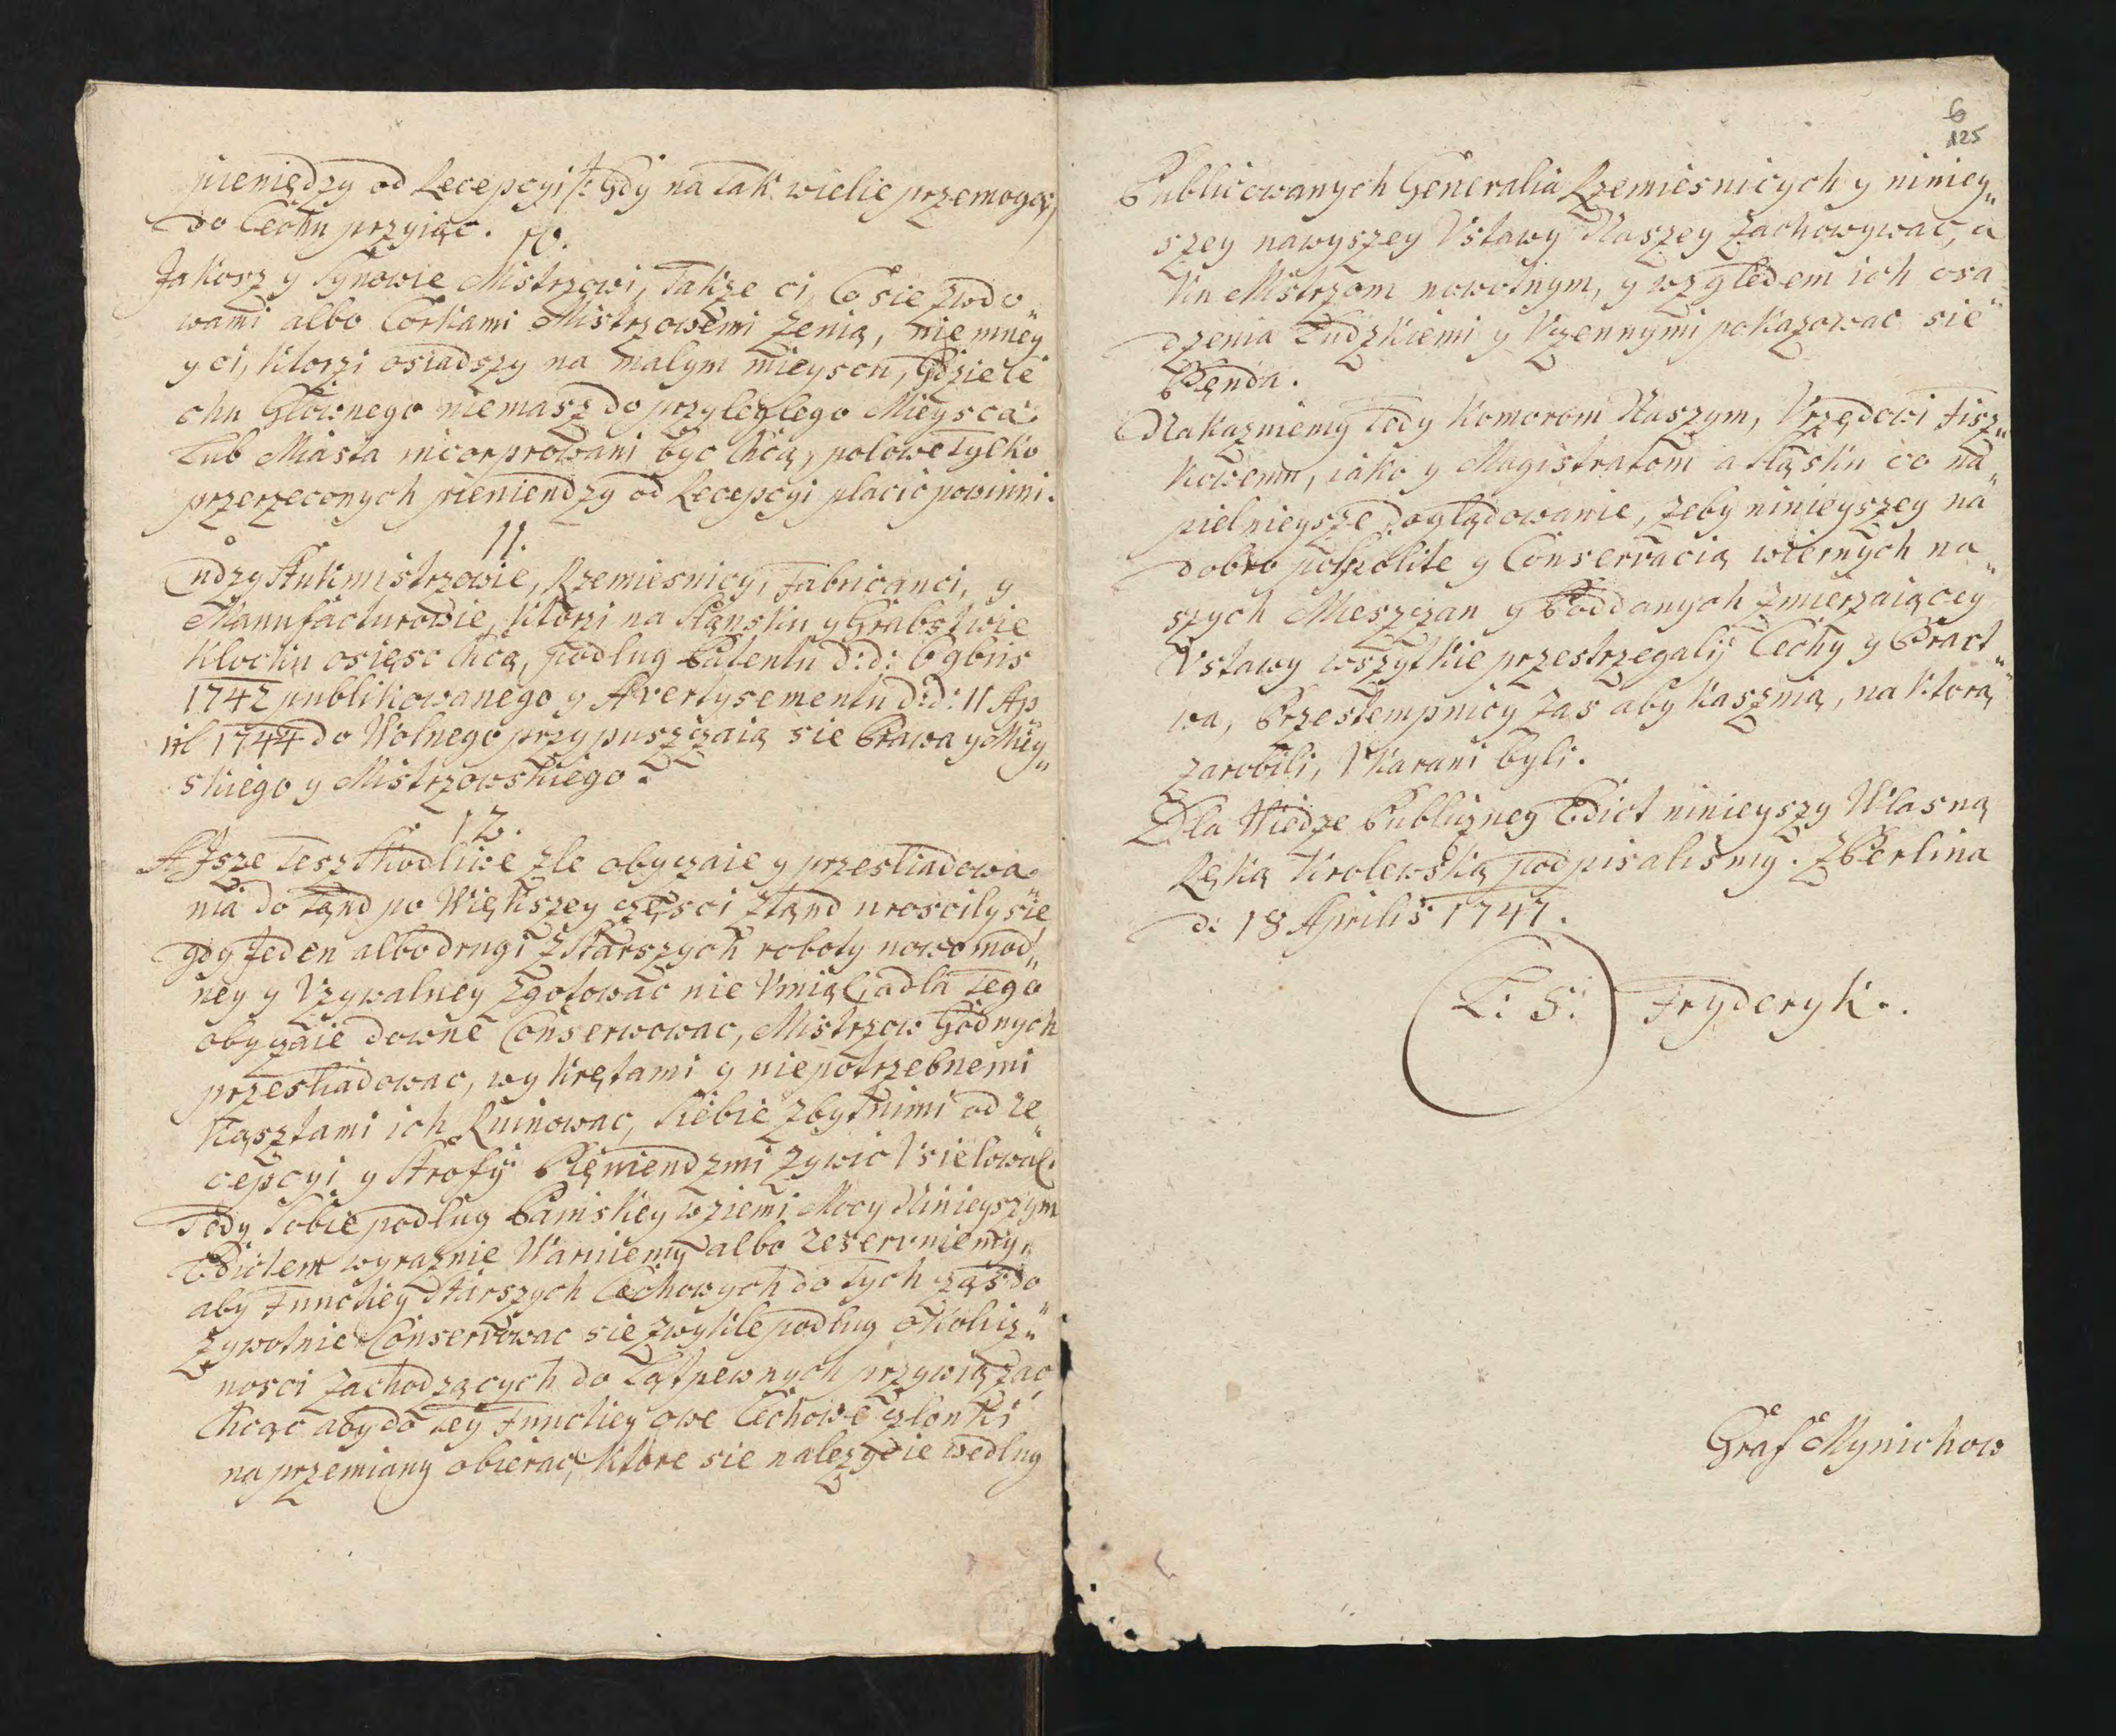 nieniędzy od Recepcyi /: Gdy na tak wielie przemogą,/
do Cechu przyiąc.
10.
Jakosz y Synowie Mistrzowi, takze ci, Co sie zwdo„
wami albo Corkami Mistrzowemi zenią, nie mney
y ci, Ktorzi osiadszy na malym mieyscu, Gdzie Ce
chu Głownego niemasz do przyleglego Mieysca
Lub Miasta incorprowani byc Chcą, polowe tylko
przerzeconych pieniendzy od Recepcyi placic powinni.
11.
Cudzy Kunkmistrzowie, Rzemiesnicy, Fabricanci, y
Manufacturowie, Ktorzi na Sląnsku y Grabstwie
Klocku osięsc Chcą, podlug Patentu d: d: 6 9bris
1742 publikowanego y Avertysementu d: d: 11 Ap
ril 1744 do Wolnego przypuszczaią sie Prawa y Miey„
skiego y Mistrzowskiego.
12.
A Isze tesz Skodliwe zle obyczaie y przesliadowa
nia do tąnd po Większey częsci ztąnd uroscily sie
gdy Jeden albo drugi z Starszych roboty nowo mod„
ney y Vzywalney zgotowac nie Vmiał, a dla tego
obyczaie downe Conserwowac, Mistrzow Godnych
przesliadowac, wykrętami y niepotrzebnemi
Kąsztami ich Ruinowac, Siebie zbytnimi od re„
cepcyi y Strofy Pięniendzmi zywic Vsielowal.
Tedy Sobie podlug Painskey w ziemi Mocy Ninieyszym
Edictem wyraznie Waruiemy albo reservuiemy,
aby Funckey Starszych Cechowych do tych cząs do
zywotnie Conservowac sie zwykle podlug okolicz„
nosci zachodzących do Ląt pewnych przywiązac
Chcąc aby do tey Funckiey owe Cechowe członki
na przemiany obierac, Ktore sie nalezycie wedlug
6
125
Publicowanych Generalia Rzemiesnicych y niniey„
szey nawyszey Vstawy Naszey zachowywac, a
Ku Mistrzom nowotnym, y względem ich osa
dzenia Ludzkiemi y Vczennymi pokazowac sie
Bęnda.
Nakazuiemy tedy Komorom Naszym, Vrzędowi Fisz„
kowemu, iako y Magistratom a Sląsku co na„
pielnieysze doglądowanie, zeby ninieyszey na
dobro pospolite y Conservacią wiernych na„
szych Mieszczan y Poddanych zmierzaiącey
Vstawy wszytkie przestrzegaly Cechy y Bract„
wa, Przestempnicy zas aby Kasznią, na Ktorą
zarobili, Vkarani byli.
Dla Wiedze Publiczney Edict ninieyszy Wlasną
Ręką Krolewską podpisalismy. z Berlina
d: 18 Aprilis 1747.
L: S: Fryderyk.
Graf Mynichow